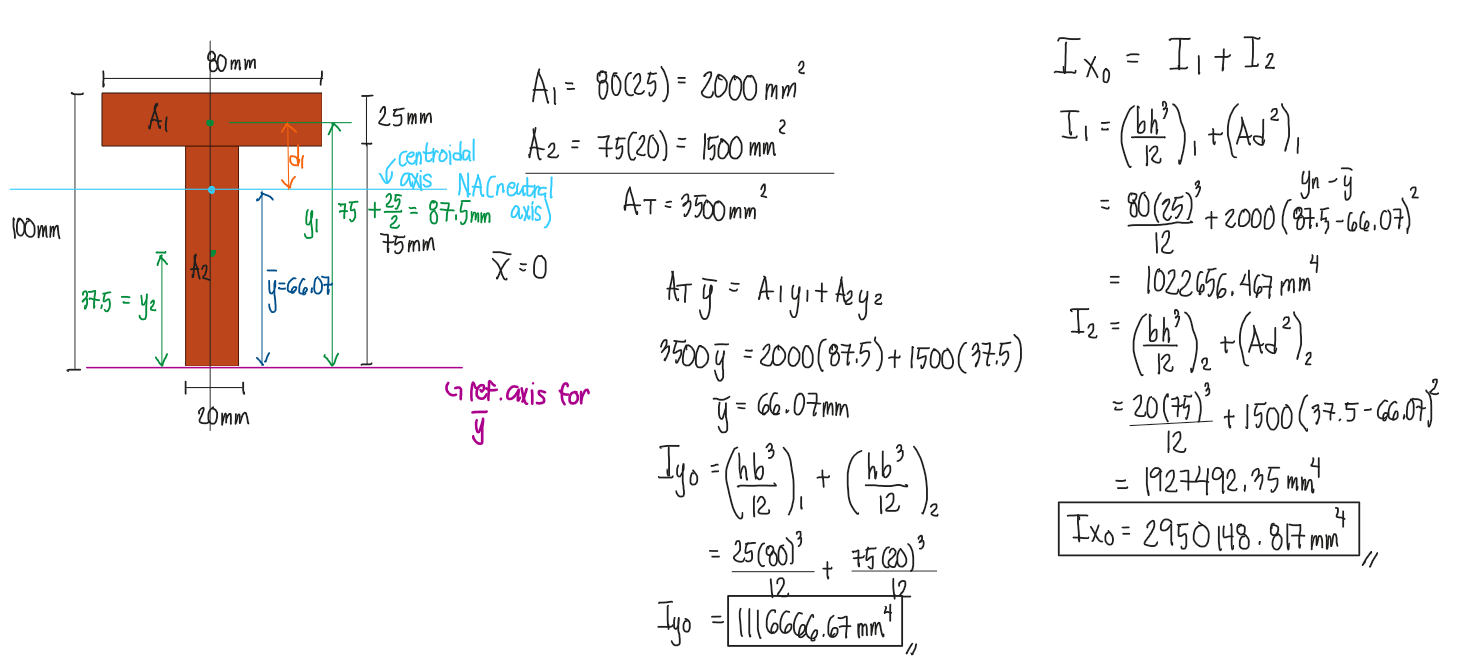 80mm
A₁
25mm
d₁
centroidal
axis
NA (neutral
axis)
y₁
75 + 25/2 = 87.5mm
100mm
75mm
A₂
37.5 = y₂
ȳ=66.07
20mm
↳ ref. axis for
ȳ
A₁ = 80(25) = 2000 mm²
A₂ = 75(20) = 1500 mm²
A_T = 3500mm²
x̄ = 0
A_T ȳ = A₁y₁ + A₂y₂
3500ȳ = 2000(87.5) + 1500(37.5)
ȳ = 66.07mm
I̅y₀ = (hb³/12)₁ + (hb³/12)₂
= 25(80)³/12 + 75(20)³/12
I̅y₀ = 1116666.67 mm⁴
I̅x₀ = I₁ + I₂
I₁ = (bh³/12)₁ + (Ad²)₁
yn - ȳ
= 80(25)³/12 + 2000(87.5-66.07)²
= 1022656.467 mm⁴
I₂ = (bh³/12)₂ + (Ad²)₂
= 20(75)³/12 + 1500(37.5-66.07)²
= 1927492.35 mm⁴
I̅x₀ = 2950148.817 mm⁴